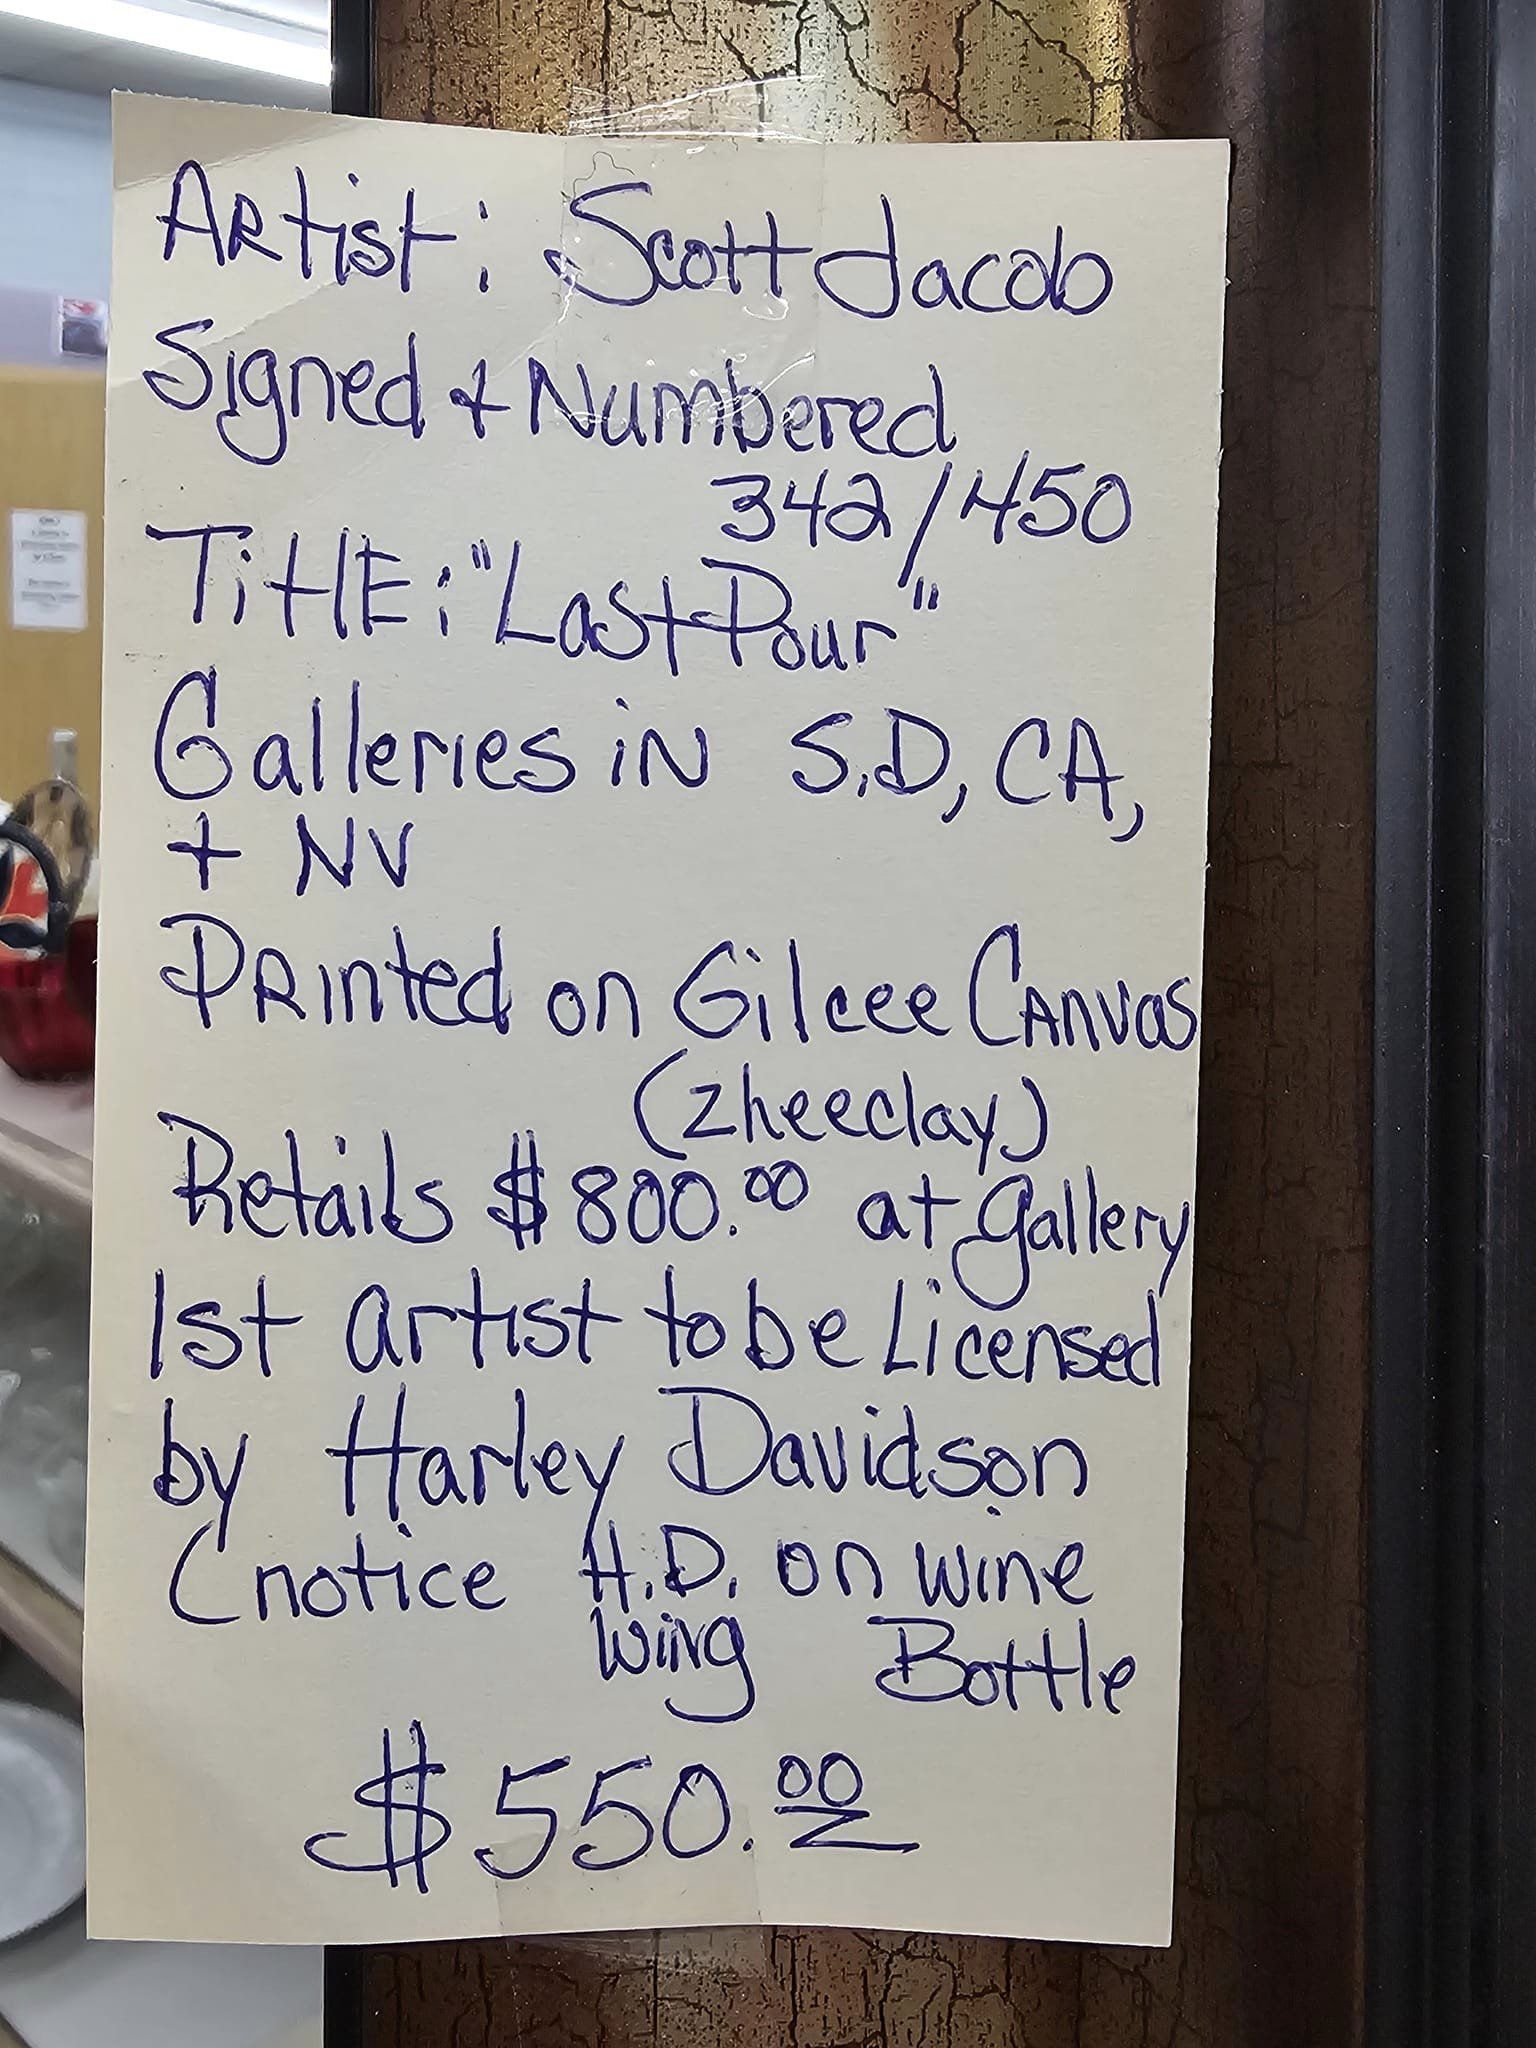 Artist: Scott Jacob
Signed + Numbered
342/450
Title: "Last Pour"
Galleries in S.D, CA,
+ NV
Printed on Gilcee Canvas
(zheeclay)
Retails $800.00 at gallery
1st artist to be Licensed
by Harley Davidson
(notice H.D. on wine
wing Bottle
$550.00